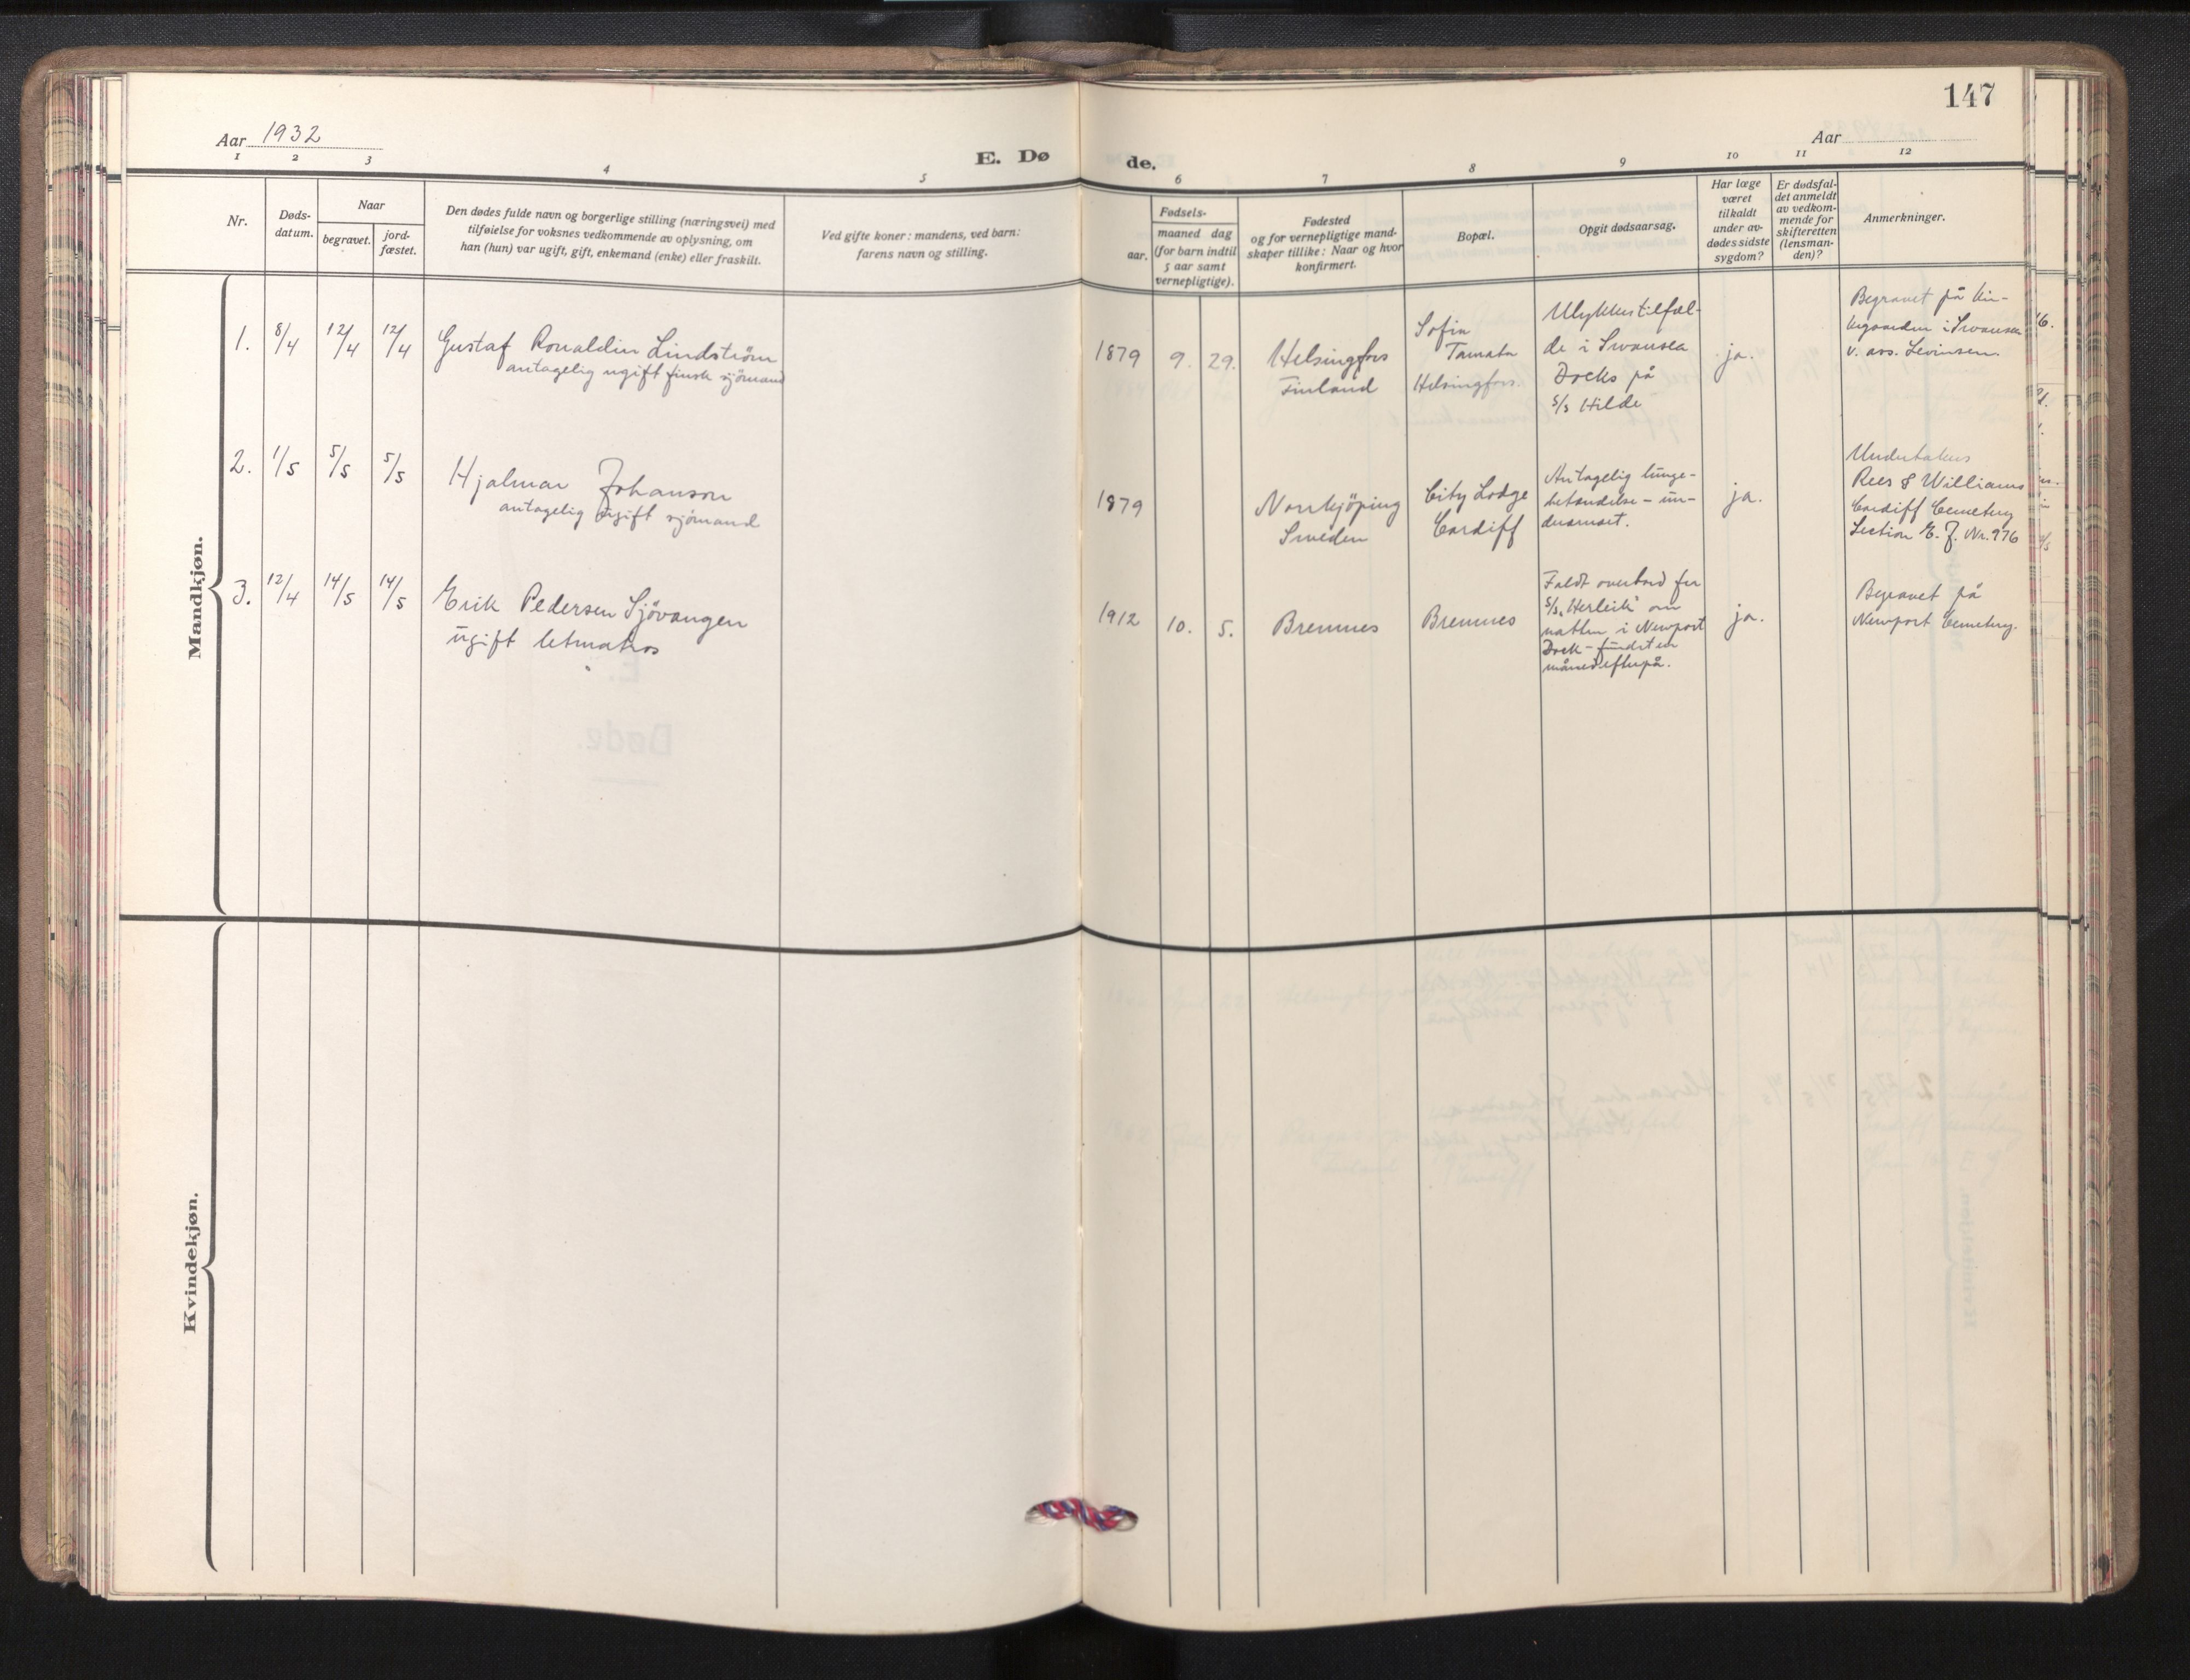 147
Aar 1932
Aar
E. Dø
de.
1 2 3 4 5 6 7 8 9 10 11 12
Nr.
Døds-
datum.
Naar
begravet.
jord-
fæstet.
Den dødes fulde navn og borgerlige stilling (næringsvei) med
tilføielse for voksnes vedkommende av oplysning, om
han (hun) var ugift, gift, enkemand (enke) eller fraskilt.
Ved gifte koner: mandens, ved barn:
farens navn og stilling.
Fødsels-
aar.
maaned dag
(for barn indtil
5 aar samt
vernepligtige).
Fødested
og for vernepligtige mand-
skaper tillike: Naar og hvor
konfirmert.
Bopæl.
Opgit dødsaarsag.
Har læge
været
tilkaldt
under av-
dødes sidste
sygdom?
Er dødsfal-
det anmeldt
av vedkom-
mende for
skifteretten
(lensman-
den)?
Anmerkninger.
Mandkjøn.
1. 8/4 12/4 12/4
Gustaf Ronaldin Lindström
antagelig ugift finsk sjömand
1879 9. 29.
Helsingfors
Finland
Sofia
Helsingfors.
Ulykkestilfæl-
de i Swansea
Docks på
S/S Hilde
ja.
Begravet på kir-
kegaarden i Swansea
v. ass. Levinsen.
2. 1/5 5/5 5/5
Hjalmar Johanson
antagelig ugift sjömand
1879
Norrkjöping
Sweden
City Lodge
Cardiff
Antagelig lunge-
betændelse - un-
dernæret.
ja.
Undertakers
Rees & Williams
Cardiff Cemetery
Section E. J. Nr. 976
3. 12/4 14/5 14/5
Erik Pedersen Sjövangen
ugift letmatros
1912 10. 5.
Bremnes
Bremnes
Faldt overbord fra
S/S „Herleik" om
natten i Newport
Dock - fundet en
måned efterpå.
ja.
Begravet på
Newport Cemetery.
Kvindekjøn.